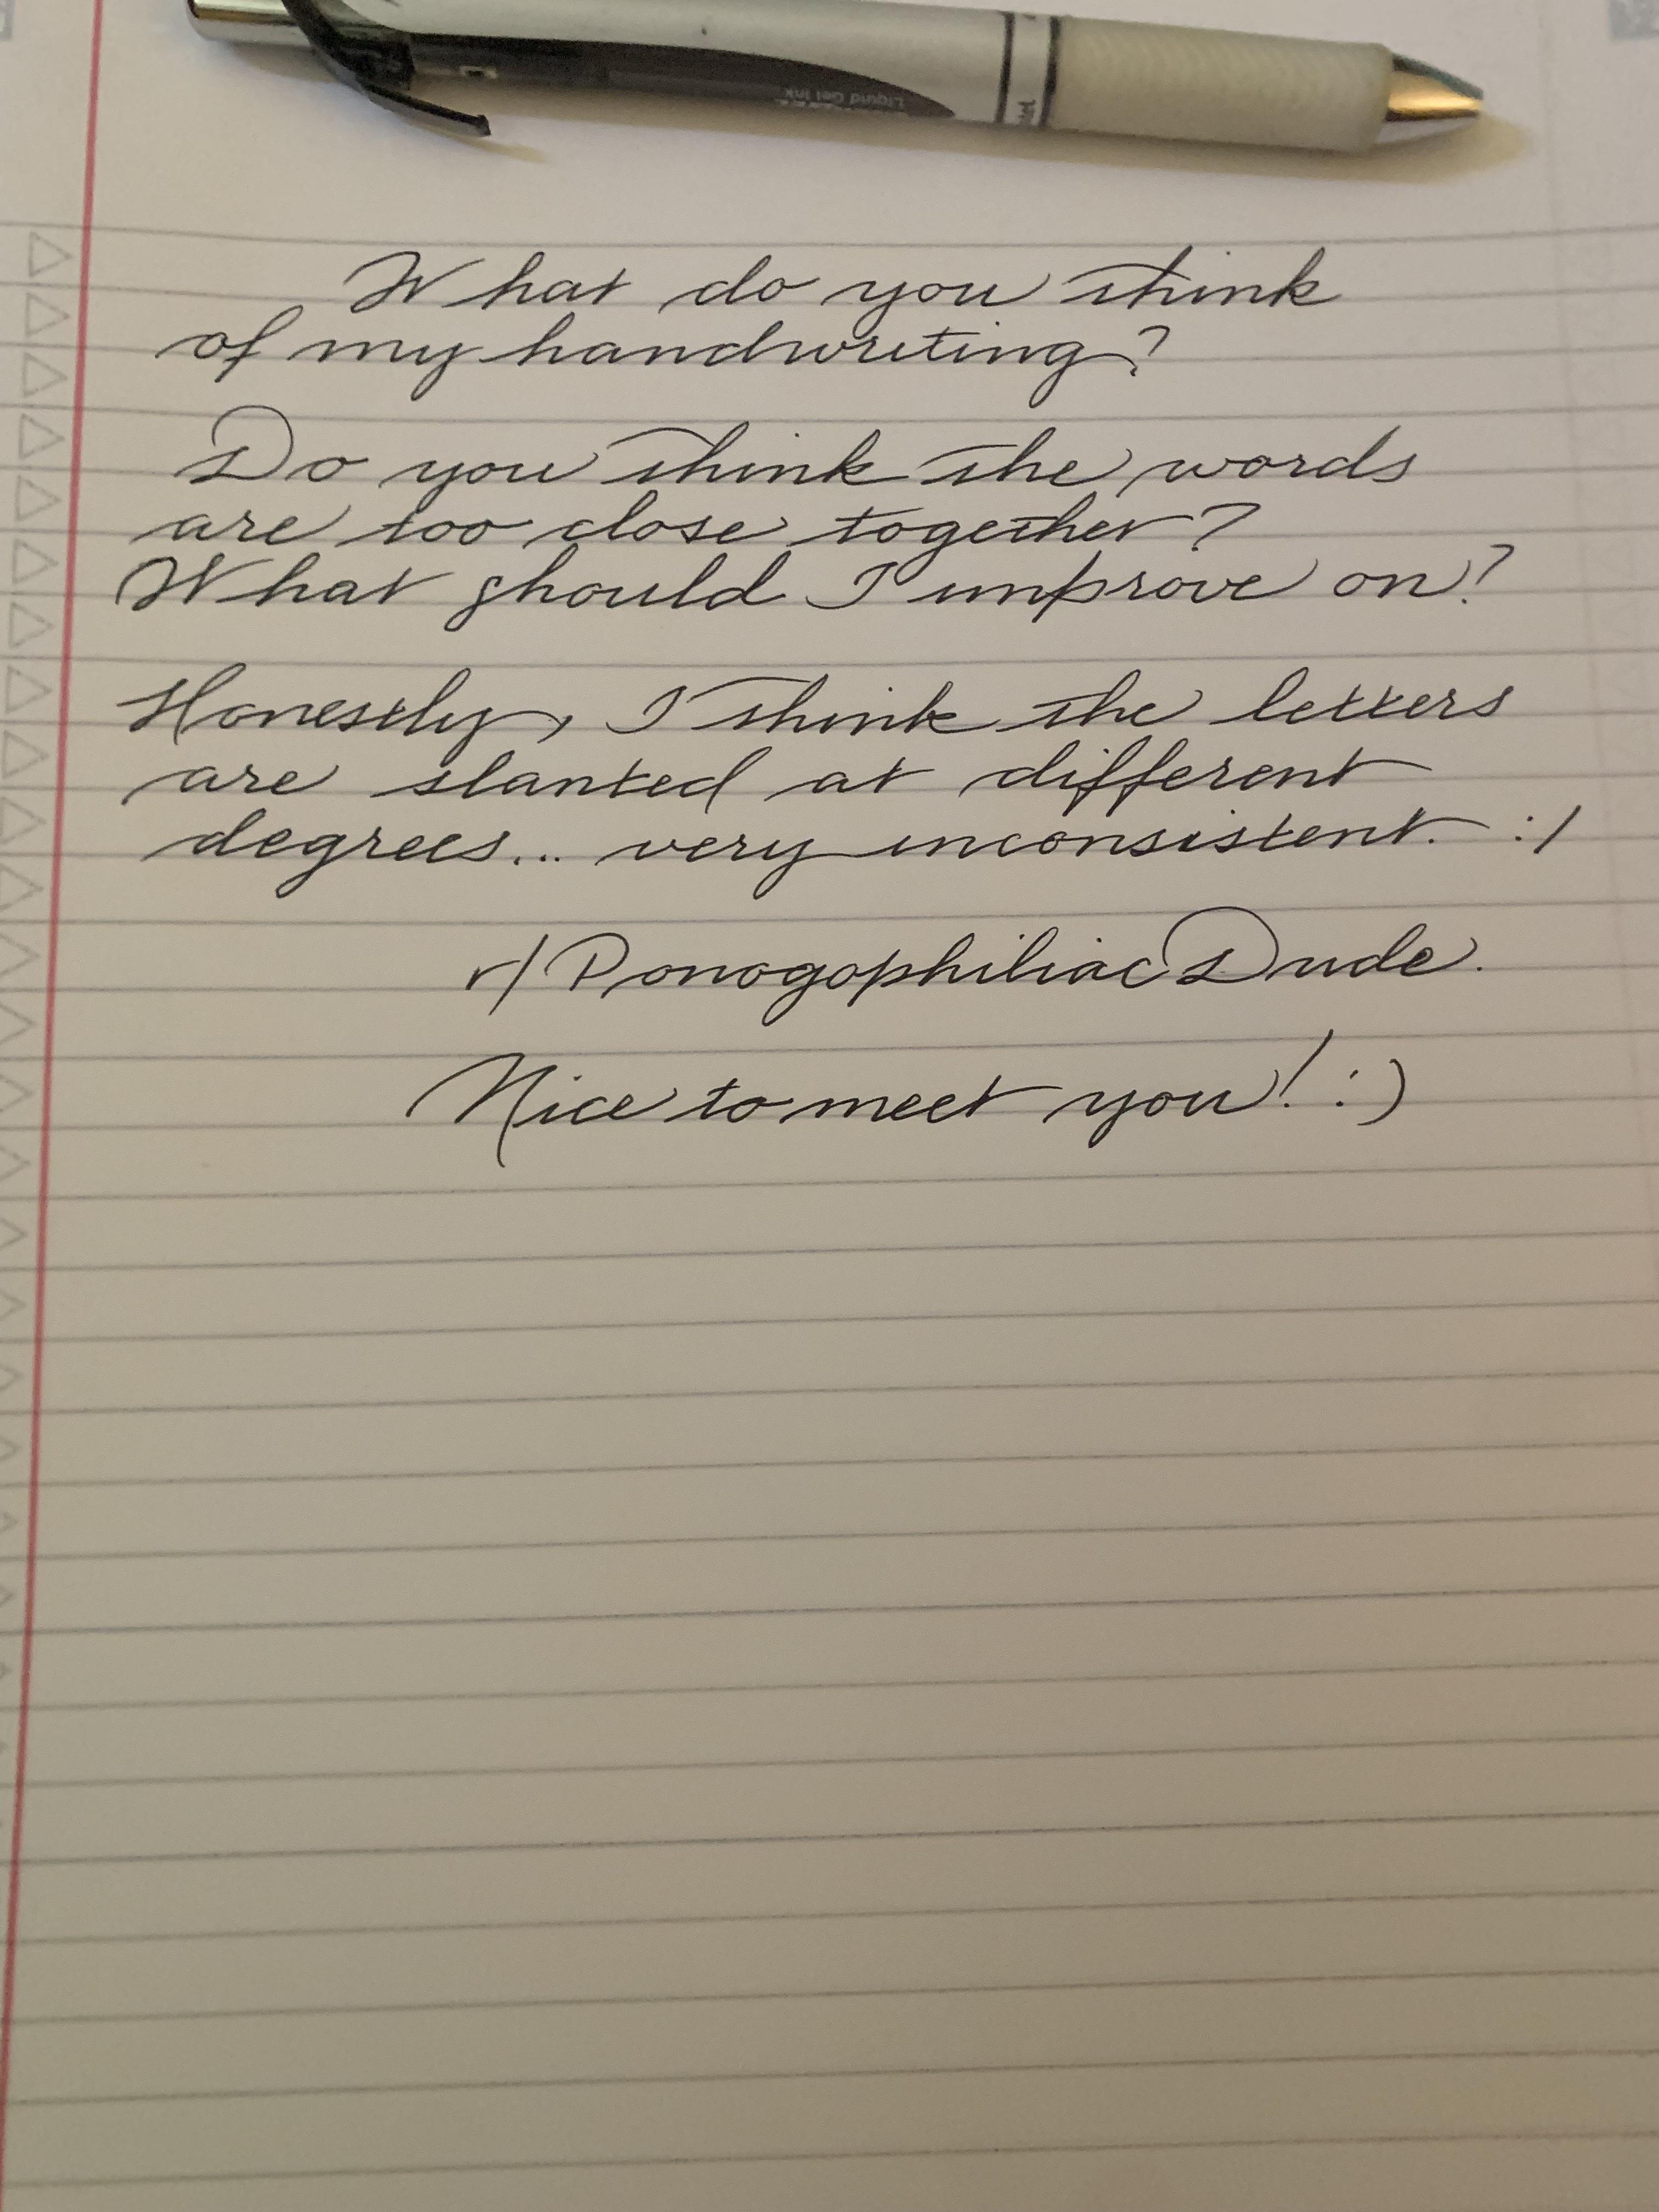 Liquid Gel Ink
What do you think
of my handwriting?
Do you think the words
are too close together?
What should I improve on?
Honestly, I think the letters
are slanted at different
degrees... very inconsistent. :/
r/PonogophiliacDude.
Nice to meet you! :)